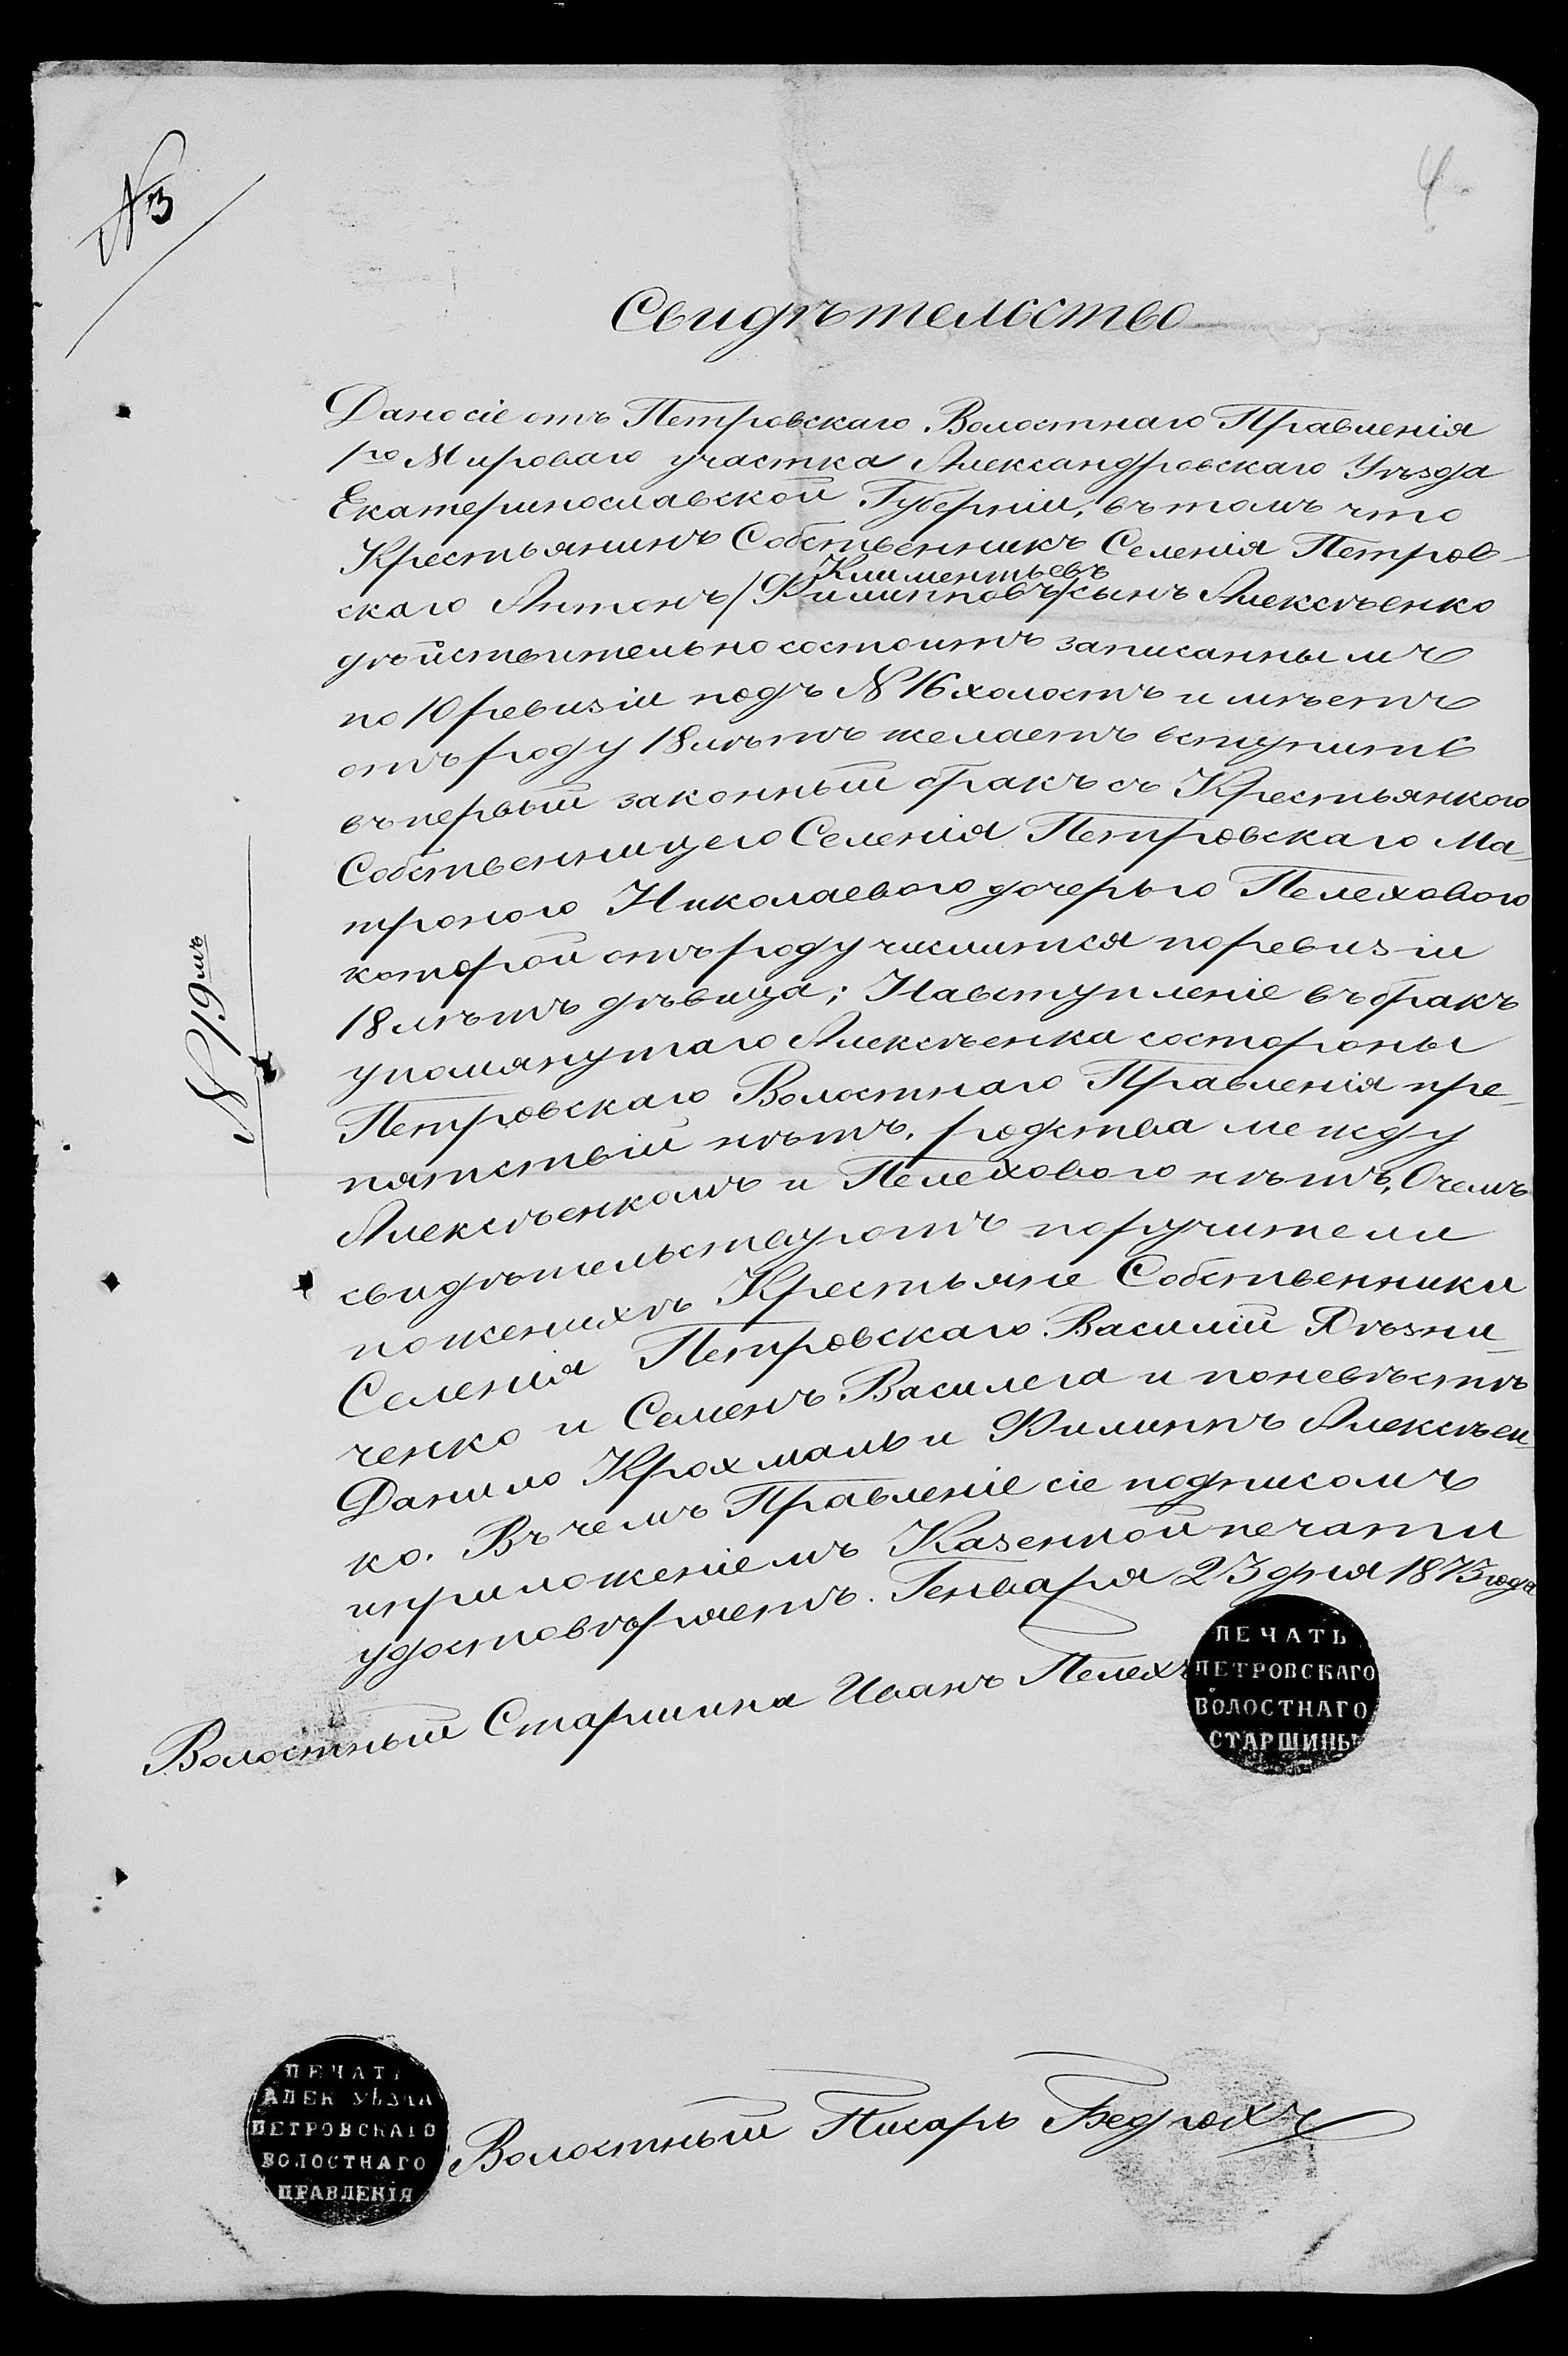 №3
4.
Свидѣтельство
Дано сіе отъ Петровскаго Волостнаго Правленія
1го Мироваго участка Александровскаго Уѣзда
Екатеринославской Губерніи, въ томъ что
Крестьянинъ Собственникъ Селенія Петров-
Климентьевъ
скаго Антонъ /Филипповъ/ сынъ Алексѣенко
дѣйствительно состоитъ записаннымъ
по 10 ревизіи подъ № 16 холостъ имѣетъ
отъ роду 18 лѣтъ желаетъ вступить
въ первый законный бракъ съ Крестьянкою
Собственницею Селенія Петровскаго Ма-
троною Николаевою дочерью Пелеховою
которой отъ роду числится по ревизіи
18 лѣтъ дѣвица; На вступленіе въ бракъ
упомянутаго Алексѣенка со стороны
Петровскаго Волостнаго Правленія пре-
пятствій нѣтъ, родства между
Алексѣенкомъ и Пелеховою нѣтъ, О чемъ
свидѣтельствуютъ поручители
по женихѣ Крестьяне Собственники
Селенія Петровскаго Василій Дѣзни-
ченко и Семенъ Василега и по невѣстѣ
Данило Крохмаль и Филиппъ Алексѣен-
ко. Въ чемъ Правленіе сіе подписомъ
и приложеніемъ Казенной печати
удостовѣряетъ. Генваря 23 дня 1873 года
№ 19мъ
Волостный Старшина Иванъ Пелехъ
ПЕЧАТЬ
ПЕТРОВСКАГО
ВОЛОСТНАГО
СТАРШИНЫ
ПЕЧАТЬ
АЛЕК УѢЗДА
ПЕТРОВСКАГО
ВОЛОСТНАГО
ПРАВЛЕНІЯ
Волостный Писарь Бедрюхъ